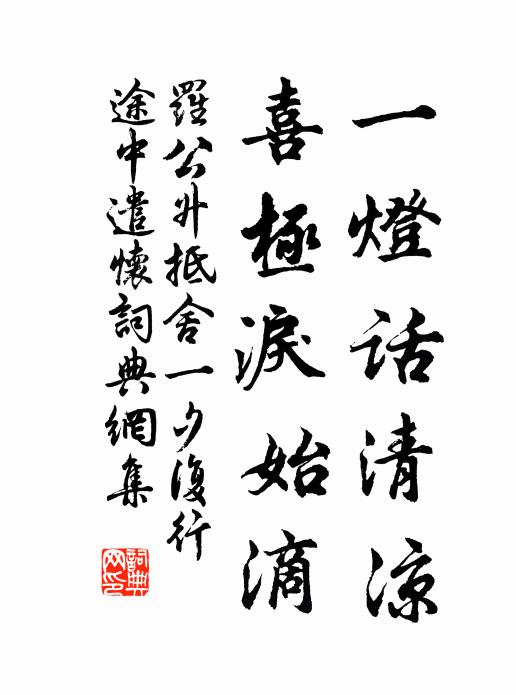 一燈话清涼
喜極淚始滴
羅公升抵舍一夕復行
途中遣懷詞典網集
詞典
网印